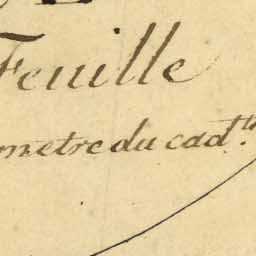 Feuille
metre du cad.tre